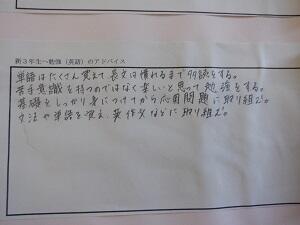 新3年生へ勉強(英語)のアドバイス
単語はたくさん覚えて、長文は慣れるまで多読をする。
苦手意識を持つのではなく楽しいと思って勉強をする。
基礎をしっかり身につけてから応用問題に取り組む。
文法や単語を覚え、英作文などに取り組む。